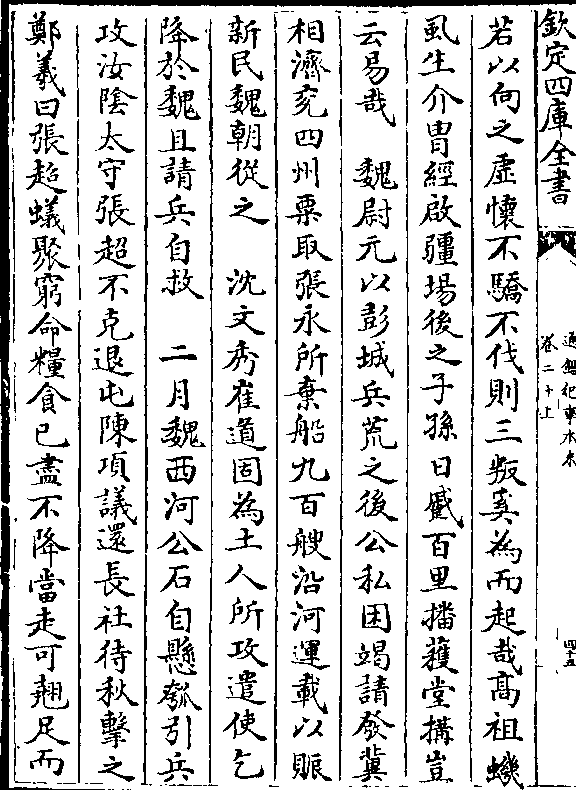 欽定四庫全書
通鑑紀事本末
卷二十上
四十五
若以向之虛懷不驕不伐則三叛奚為而起哉髙祖蟣
虱生介胄經啟疆場後之子孫日蹙百里播穫堂搆豈
云易哉　魏尉元以彭城兵荒之後公私困竭請發冀
相濟兖四州粟取張永所棄船九百艘沿河運載以賑
新民魏朝從之　沈文秀崔道固為土人所攻遣使乞
降於魏且請兵自救　二月魏西河公石自懸瓠引兵
攻汝隂太守張超不克退屯陳項議還長社待秋擊之
鄭羲曰張超蟻聚窮命糧食已盡不降當走可翹足而